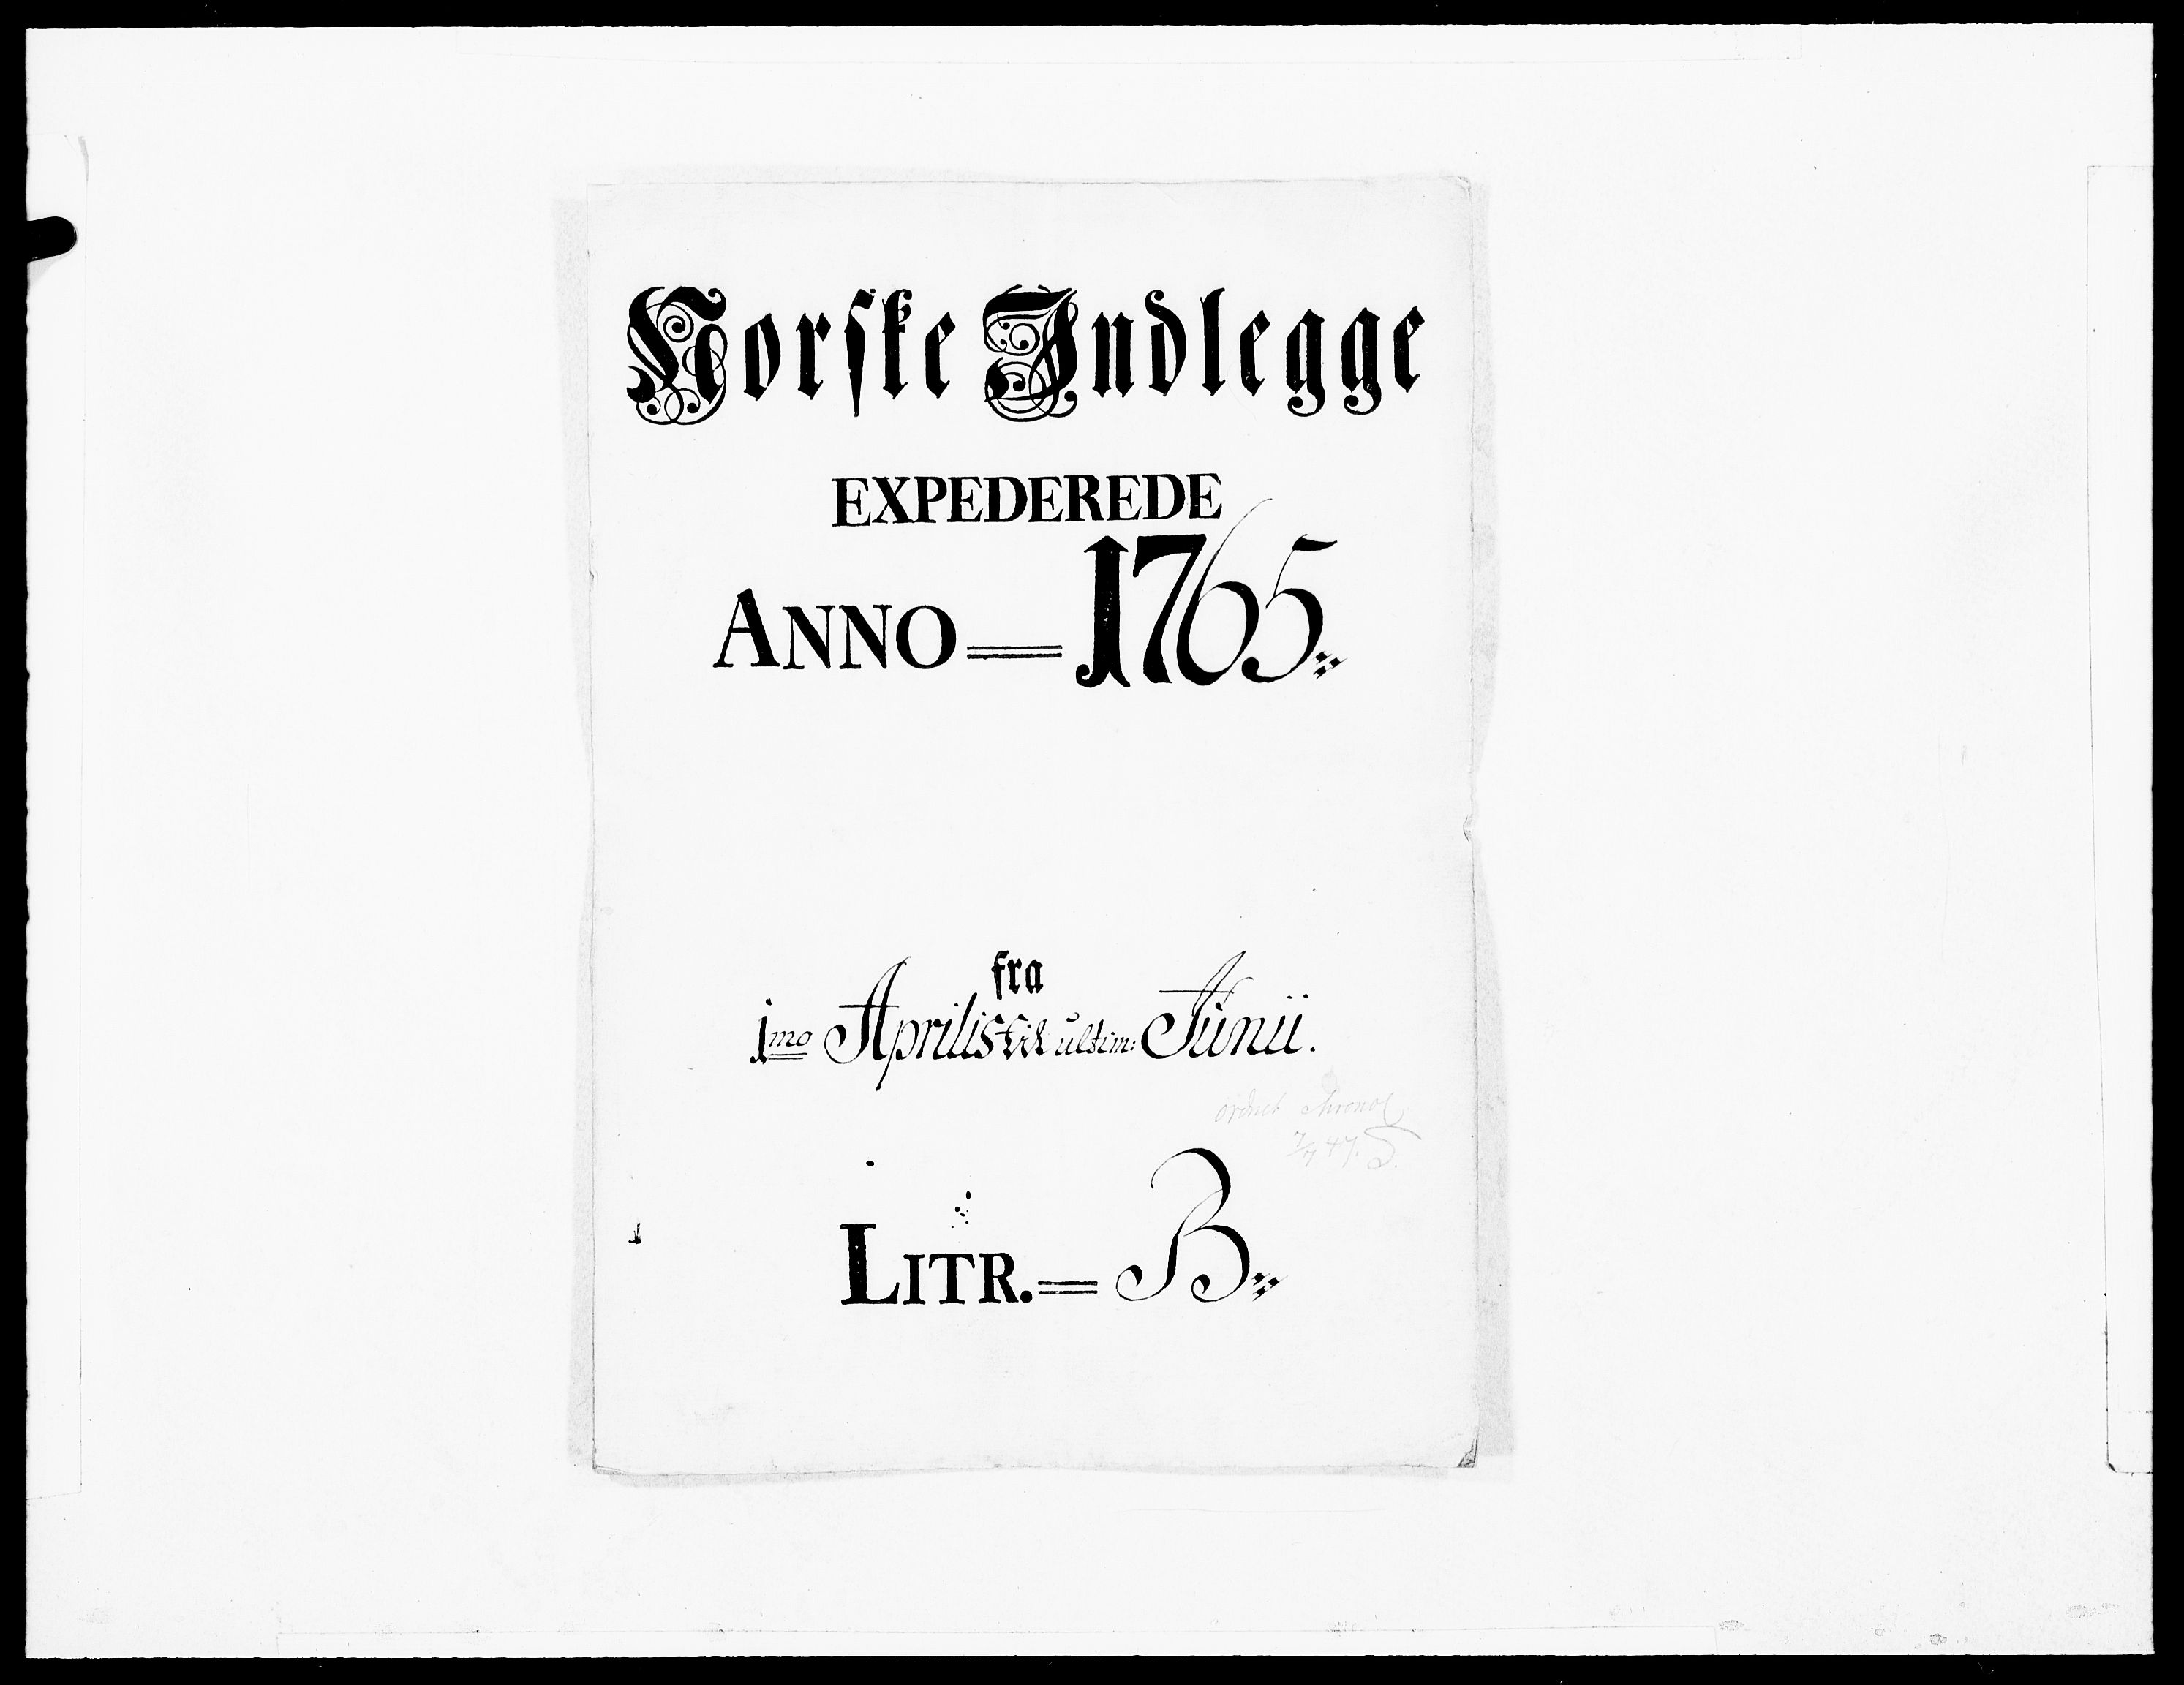 Norske Indlegge
EXPEDEREDE
ANNO = 1765
fra
1mo Aprilis til ultim: Junii.
ordnet chronol.
7/7 47. S.
LITR. = B